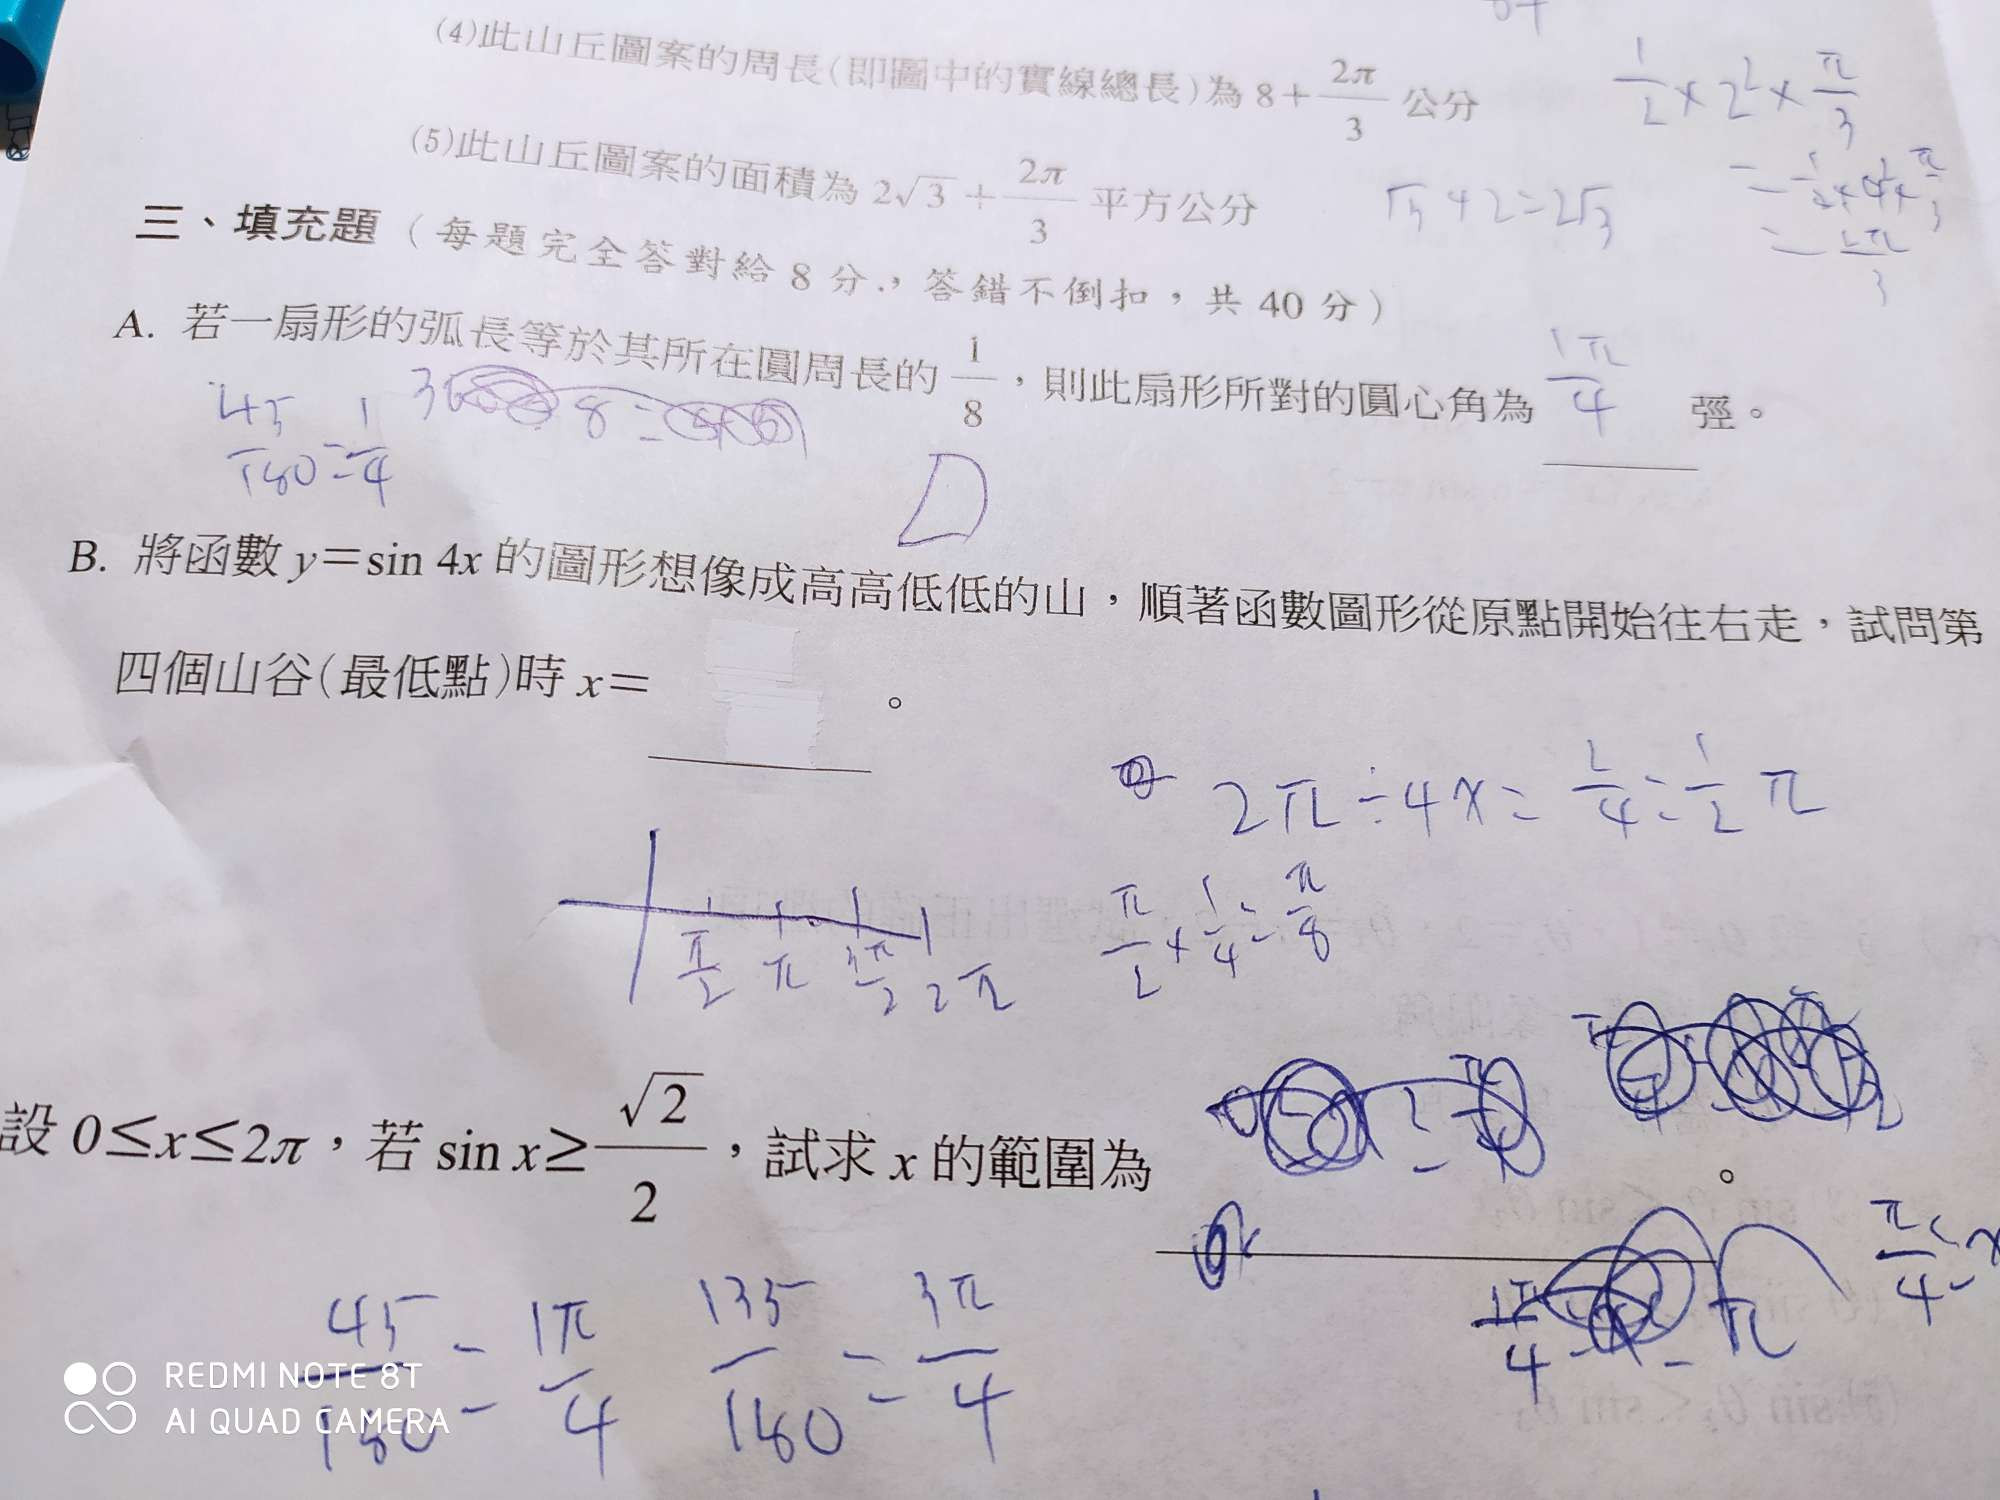 (4)此山丘圖案的周長(即圖中的實線總長)為 8+2π/3 公分
1/2×2²×π/3
(5)此山丘圖案的面積為 2√3+2π/3 平方公分
=1/2×4×π/3
=2π/3
三、填充題（每題完全答對給 8 分.，答錯不倒扣，共 40 分）
A. 若一扇形的弧長等於其所在圓周長的 1/8，則此扇形所對的圓心角為 1π/4 弳。
45/180=1/4
B. 將函數 y=sin 4x 的圖形想像成高高低低的山，順著函數圖形從原點開始往右走，試問第
四個山谷(最低點)時 x= 。
2π÷4x=2/4=1/2π
π/2 π 3π/2 2π
π/2×1/4=π/8
設 0≤x≤2π，若 sin x≥√2/2，試求 x 的範圍為 。
π/4≤x
45/180=1π/4 135/180=3π/4
REDMI NOTE 8T
AI QUAD CAMERA